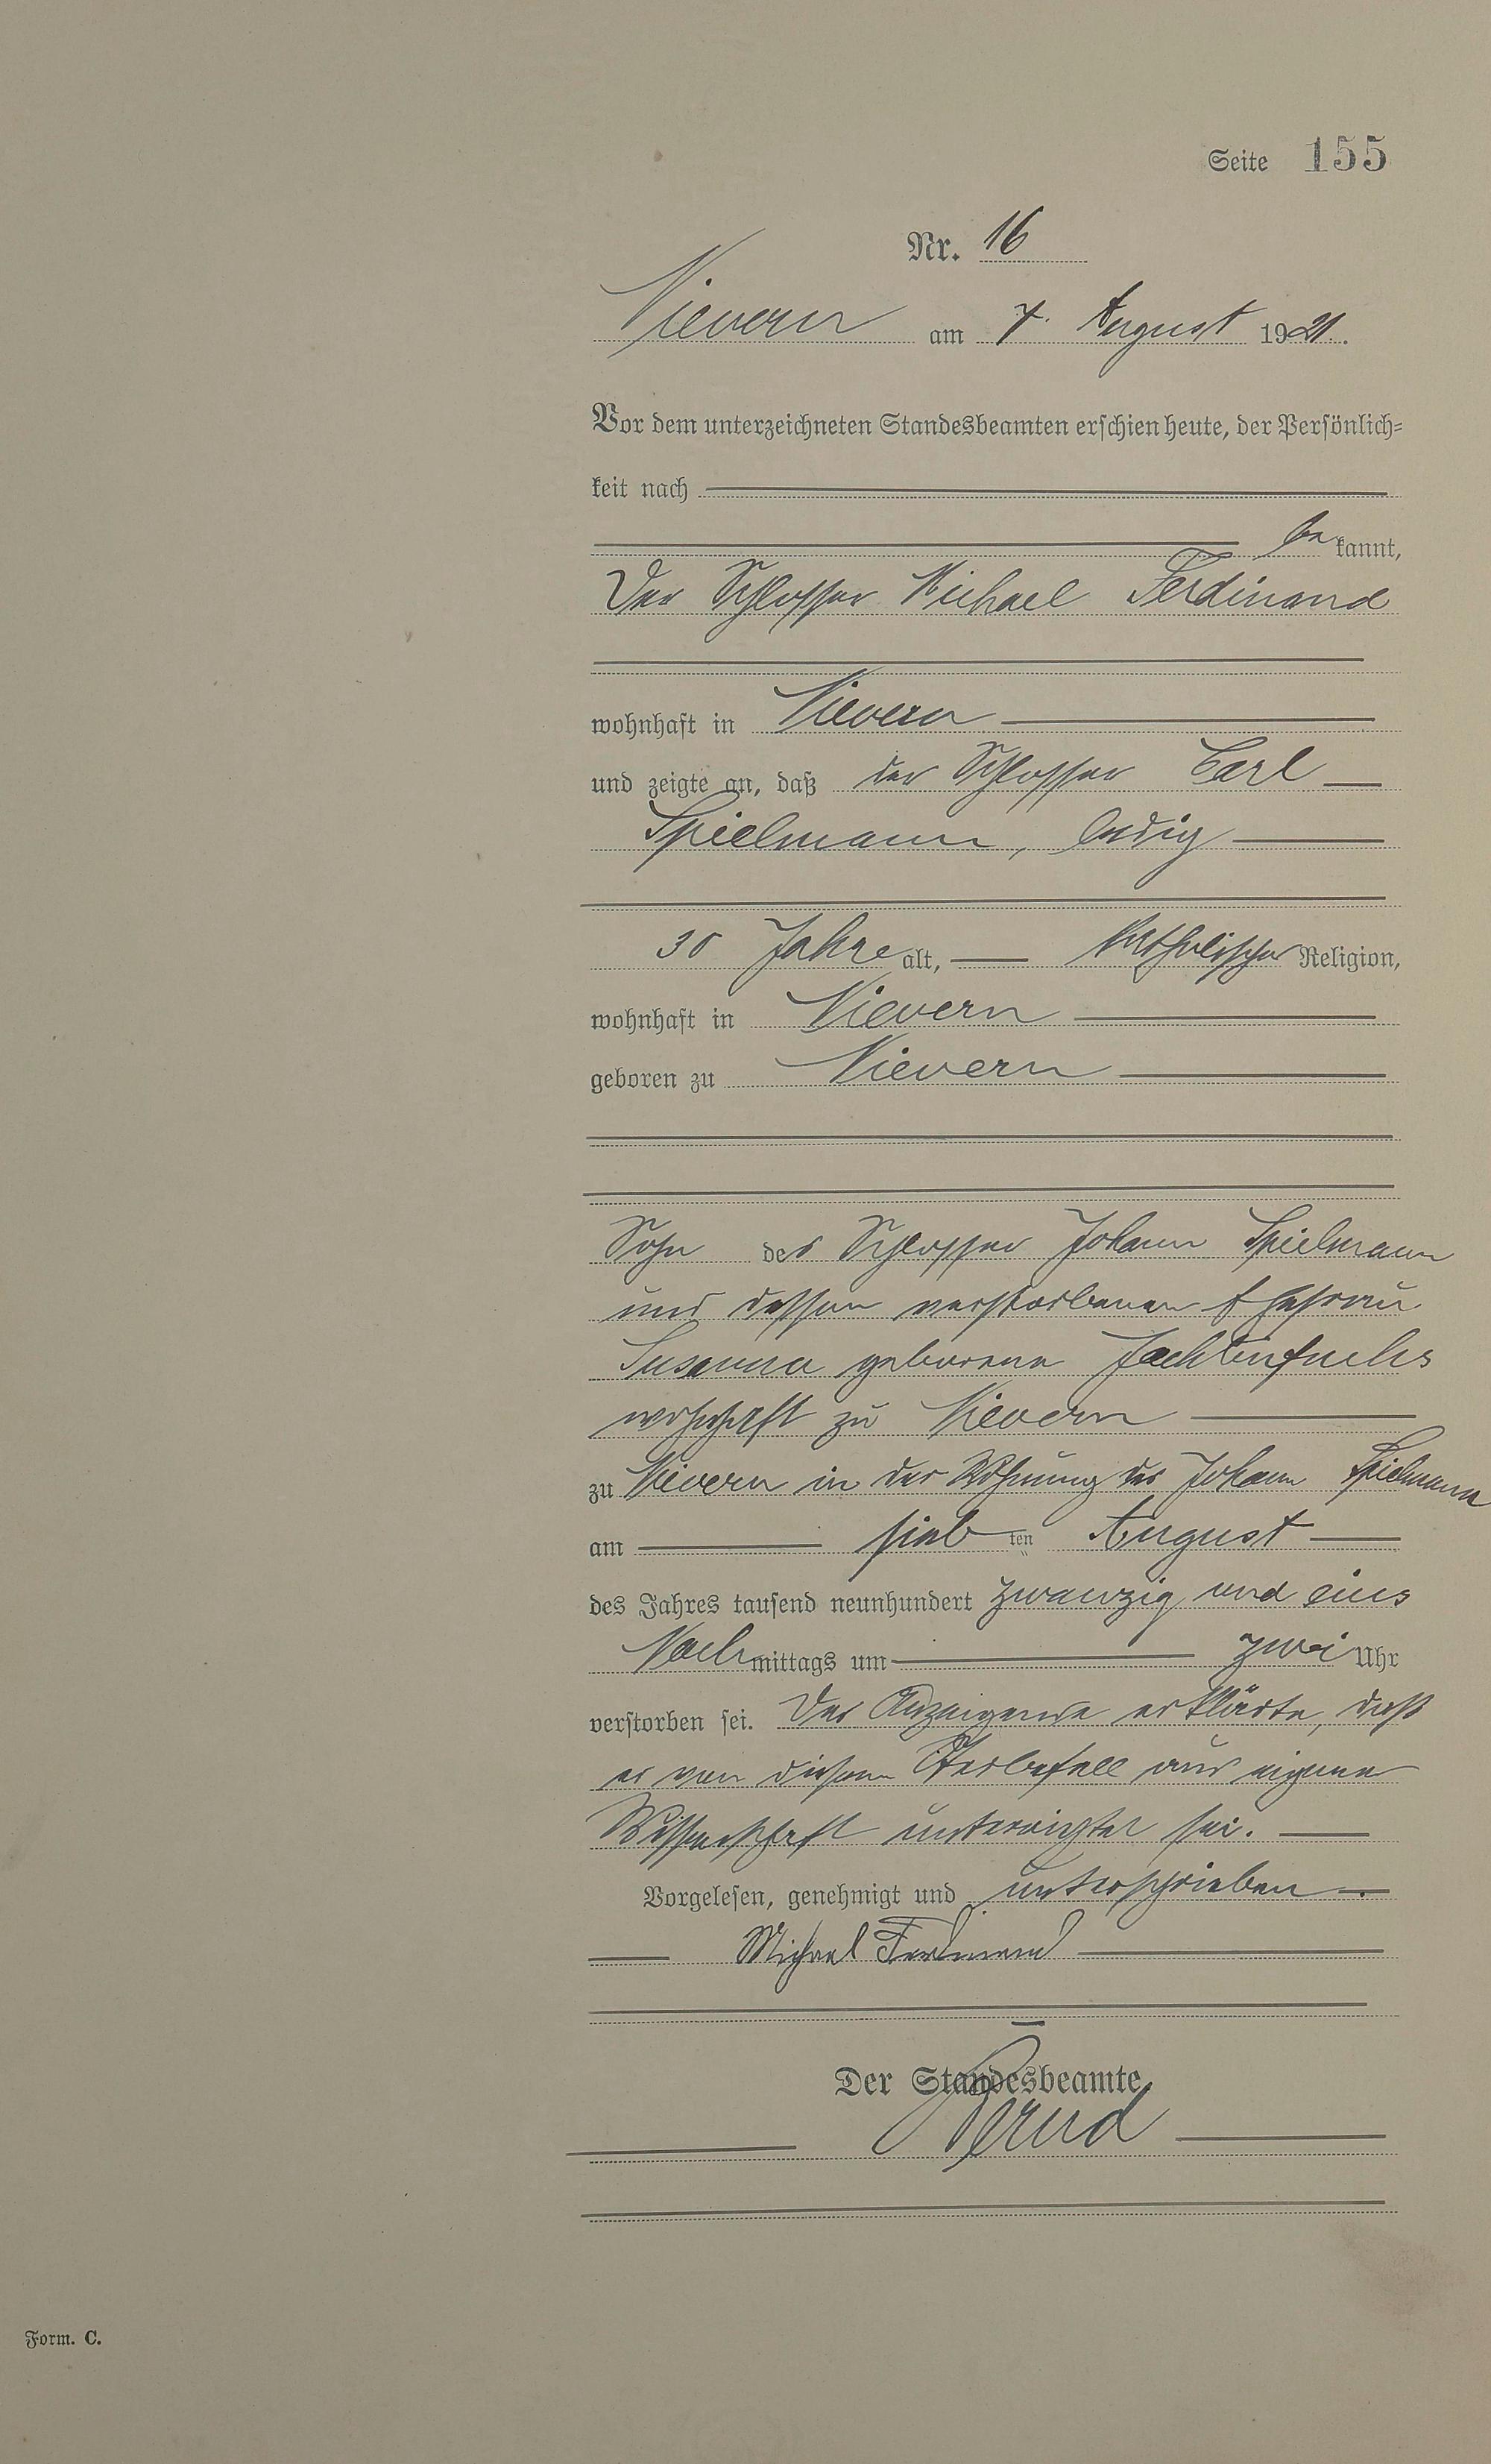 Seite 155
Nr. 16
Nievern am 7. August 1921.
Vor dem unterzeichneten Standesbeamten erschien heute, der Persönlich=
keit nach
be kannt,
Der Schlosser Michael Ferdinand
wohnhaft in Nievern
und zeigte an, daß der Schlosser Carl
Spielmann, ledig
30 Jahre alt, katholischer Religion,
wohnhaft in Nievern
geboren zu Nievern
Sohn des Schlosser Johann Spielmann
und dessen verstorbenen Ehefrau
Susanna geborene
wohnhaft zu Nievern
zu Nievern in der Wohnung des Johann Spielmann
am sieb ten August
des Jahres tausend neunhundert zwanzig und eins
Nachmittags um zwei Uhr
verstorben sei. Der Anzeigende erklärte, daß
er von diesem Sterbefall aus eigener
Wissenschaft unterrichtet sei.
Vorgelesen, genehmigt und unterschrieben
Michael Ferdinand
Der Standesbeamte
Form. C.